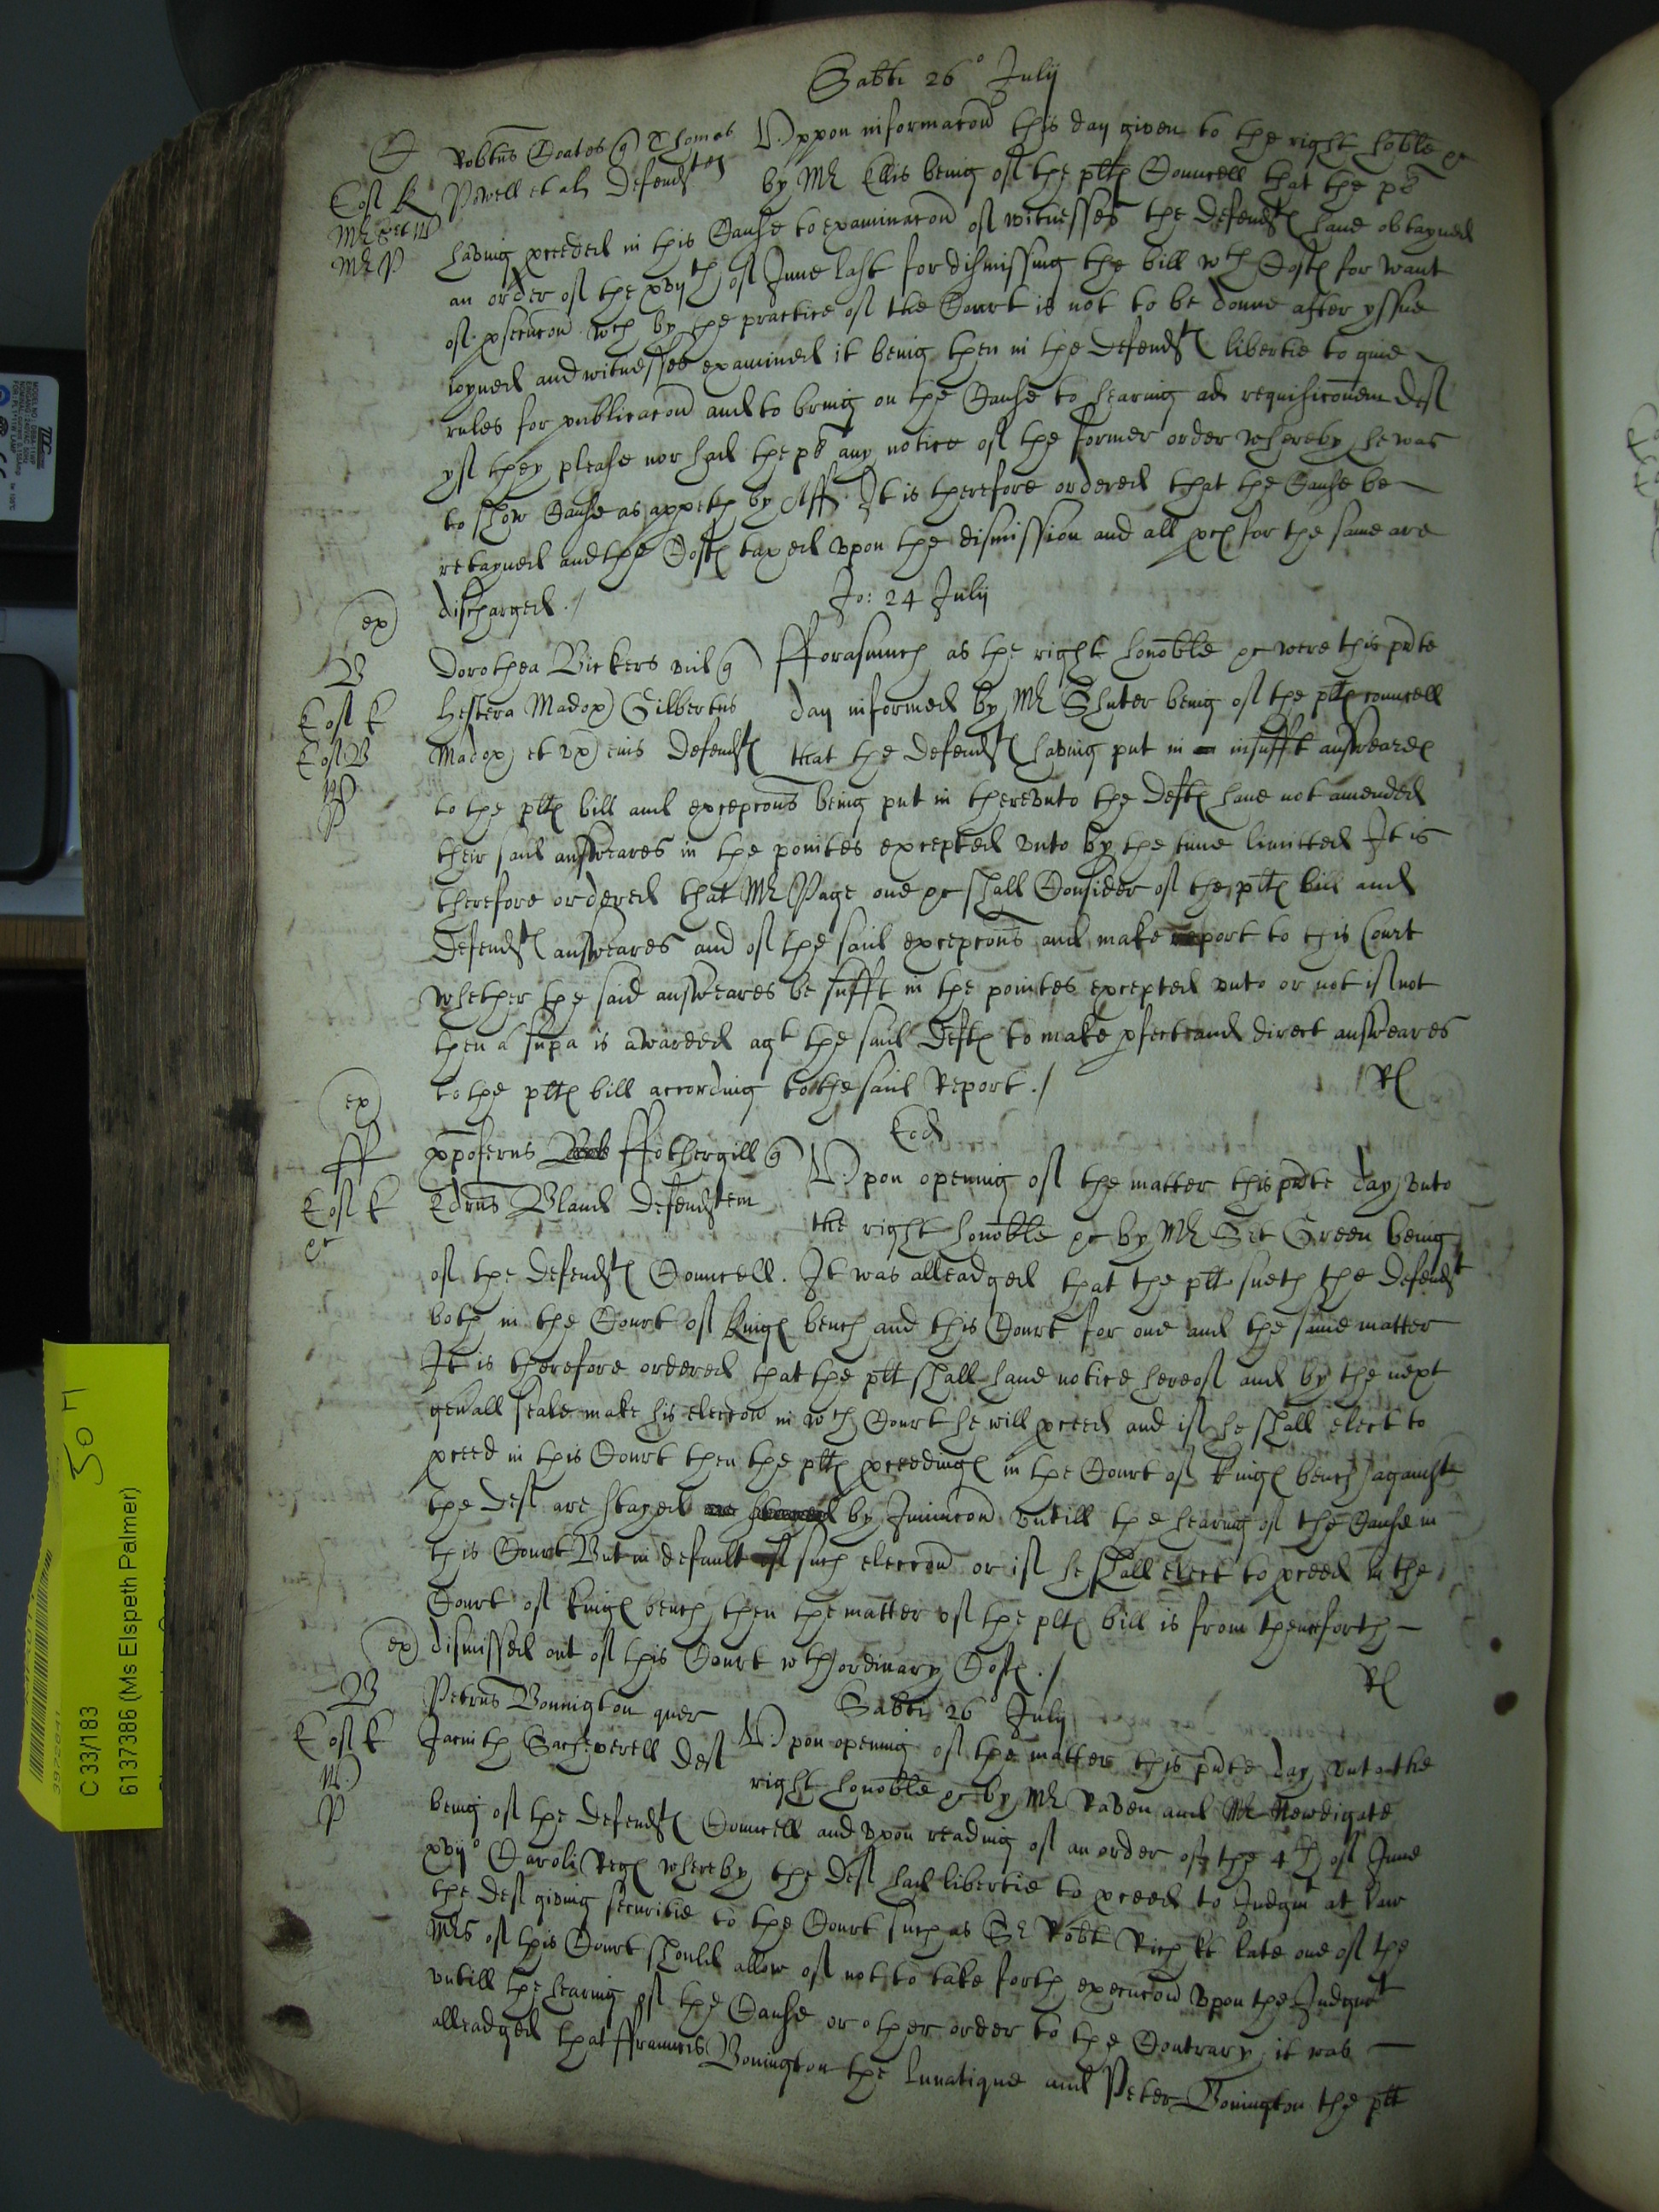 Sabti 26° July
C Robtus Coates q Thomas Vppon informacon this day given to the right hoble &c
Ios K Powell et als Defendtes by Mr Ellis being of the pltes Councell that the plt
having pceeded in this Cause to examinacon of witnesses the Defendtes haue obtayned
Mr P an order of the xvijth of June last for dismissing the bill wth Costes for want
of psecucon wch by the practice of the Court is not to be donne after yssue
ioyned and witnesses examined it being then in the Defendtes libertie to giue
rules for publicacon and to bring on the Cause to hearing ad requisiconem Def
yf they please nor had the plt any notice of the former order whereby he was
to shew Cause as appeth by Aff. It is therefore ordered that the Cause be
retayned and the Costes taxed vpon the dismission and all pces for the same are
ex discharged ./
Jo: 24 July
B Dorothea Bickers vid q fforasmuch as the right honoble &c were this pnte
Ios K Hestera Madox Gilbertus day informed by Mr Shuter being of the pltes councell
Ios B Madox et vx eius Defendtes that the Defendtes having put in insufft answeares
P to the pltes bill and excepcons being put in therevnto the Deftes haue not amended
their said answeares in the pointes excepted vnto by the time limitted It is
therefore ordered that Mr Page one &c shall Consider of the pltes bill and
Defendtes answeares and of the said excepcons and make report to this Court
whether the said answeares be sufft in the pointes excepted vnto or not if not
then a supa is awarded agt the said Deftes to make pfect and direct answeares
to the pltes bill according to the said Report ./
Rl
ex
Eod
ff xpoferus ffothergill q Vpon opening of the matter this pnte day vnto
Ios K Edrus Bland Defendtem the right honoble &c by Mr Set Green being
of the Defendtes Councell. It was alleadged that the plt sueth the Defendt
both in the Court of Kinges bench and this Court for one and the same matter
It is therefore ordered that the plt shall haue notice hereof and by the next
genall seale make his eleccon in wch Court he will pceed and if he shall elect to
pceed in this Court then the pltes pceedinges in the Court of kinges bench against
the Def are stayed by Iniuncon vntill the hearing of the Cause in
this Court But in default of such eleccon or if he shall elect to pceed in the
Court of kinges bench then the matter of the pltes bill is from thenceforth
ex dismissed out of this Court wth ordinary Costes ./
Rl
Sabti 26° July
B Petrus Bonnigton quer Vpon opening of the matter this pnte day vnto the
Ios K Jacinth Sacheverell Def right honoble &c by Mr Raven and Mr Newdigate
P being of the Defendtes Councell and vpon reading of an order of the 4th of June
xvij° Caroli Regs whereby the Def had libertie to pceed to Judgmt at law
the Def giving securitie to the Court such as Sr Robt Rich kt late one of the
Mrs of this Court should allow of not to take forth execucon vpon the Judgmt
vntill the hearing of the Cause or other order to the Contrary it was
alleadged that ffrauncis Bonington the Lunatique and Peter Bonington the plt
C 33/183
6137386 (Ms Elspeth Palmer)